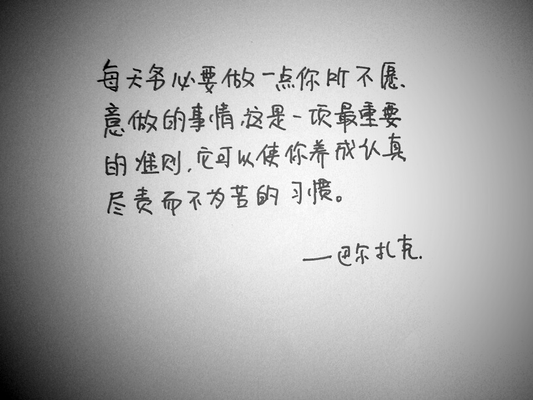 每天务必要做一点你所不愿
意做的事情.这是一项最重要
的准则,它可以使你养成认真
尽责而不为苦的习惯。
——巴尔扎克.